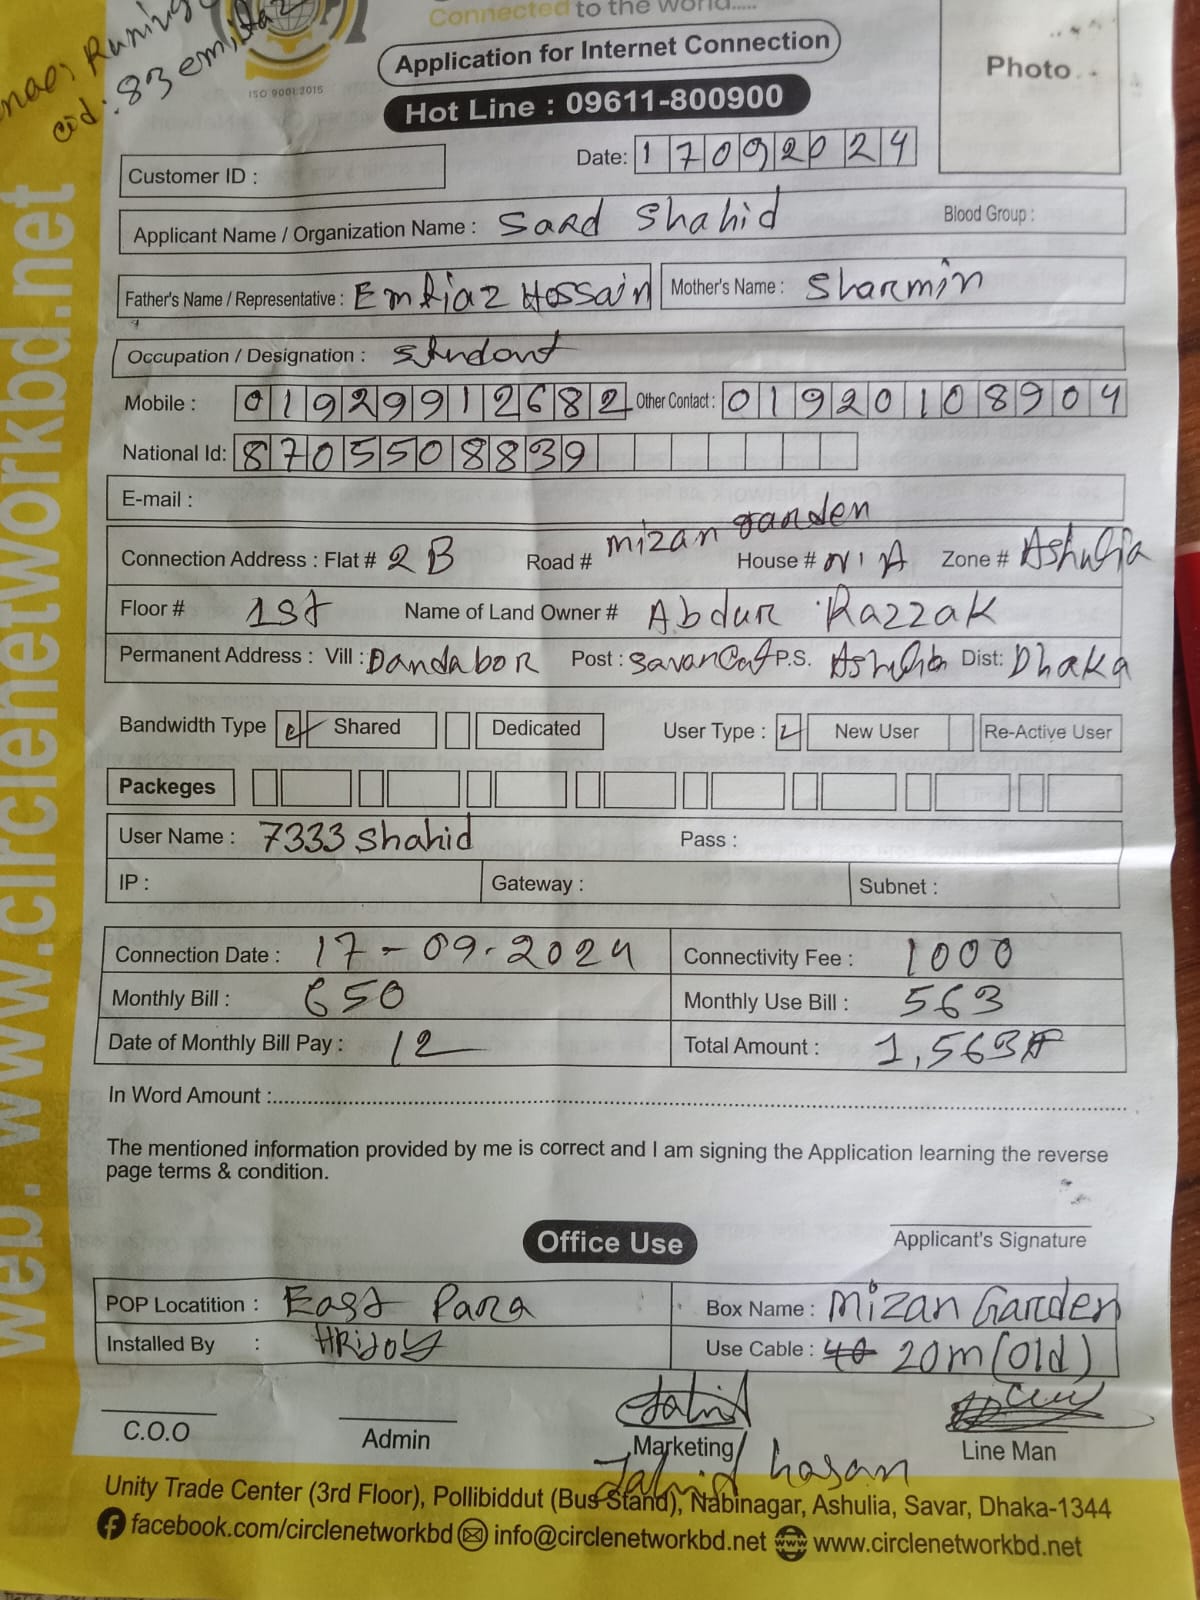 Connected to the world.....
Runing
cid: 83 emitaz
ISO 9001:2015
Application for Internet Connection
Hot Line : 09611-800900
Photo
Date: 17092024
Customer ID :
Applicant Name / Organization Name : Saad Shahid Blood Group :
Father's Name / Representative : Emtiaz Hossain Mother's Name : Sharmin
Occupation / Designation : Student
Mobile : 01929912682 Other Contact : 01920108904
National Id: 8705508839
E-mail :
Connection Address : Flat # 2B Road # mizan garden House # N/A Zone # Ashulia
Floor # 1st Name of Land Owner # Abdur Razzak
Permanent Address : Vill : Dandabor Post : SavarCat P.S. Ashulia Dist: Dhaka
Bandwidth Type Shared Dedicated User Type : New User Re-Active User
Packeges
User Name : 7333 shahid Pass :
IP : Gateway : Subnet :
Connection Date : 17-09-2024 Connectivity Fee : 1000
Monthly Bill : 650 Monthly Use Bill : 563
Date of Monthly Bill Pay : 12 Total Amount : 1,563
In Word Amount :
The mentioned information provided by me is correct and I am signing the Application learning the reverse
page terms & condition.
Applicant's Signature
Office Use
POP Locatition : East Para Box Name : Mizan Garden
Installed By : HRidoy Use Cable : 40 20m (old)
Jahid
C.O.O Admin Marketing Line Man
Jahid hasan
Unity Trade Center (3rd Floor), Pollibiddut (Bus Stand), Nabinagar, Ashulia, Savar, Dhaka-1344
facebook.com/circlenetworkbd info@circlenetworkbd.net www.circlenetworkbd.net
web: www.circlenetworkbd.net